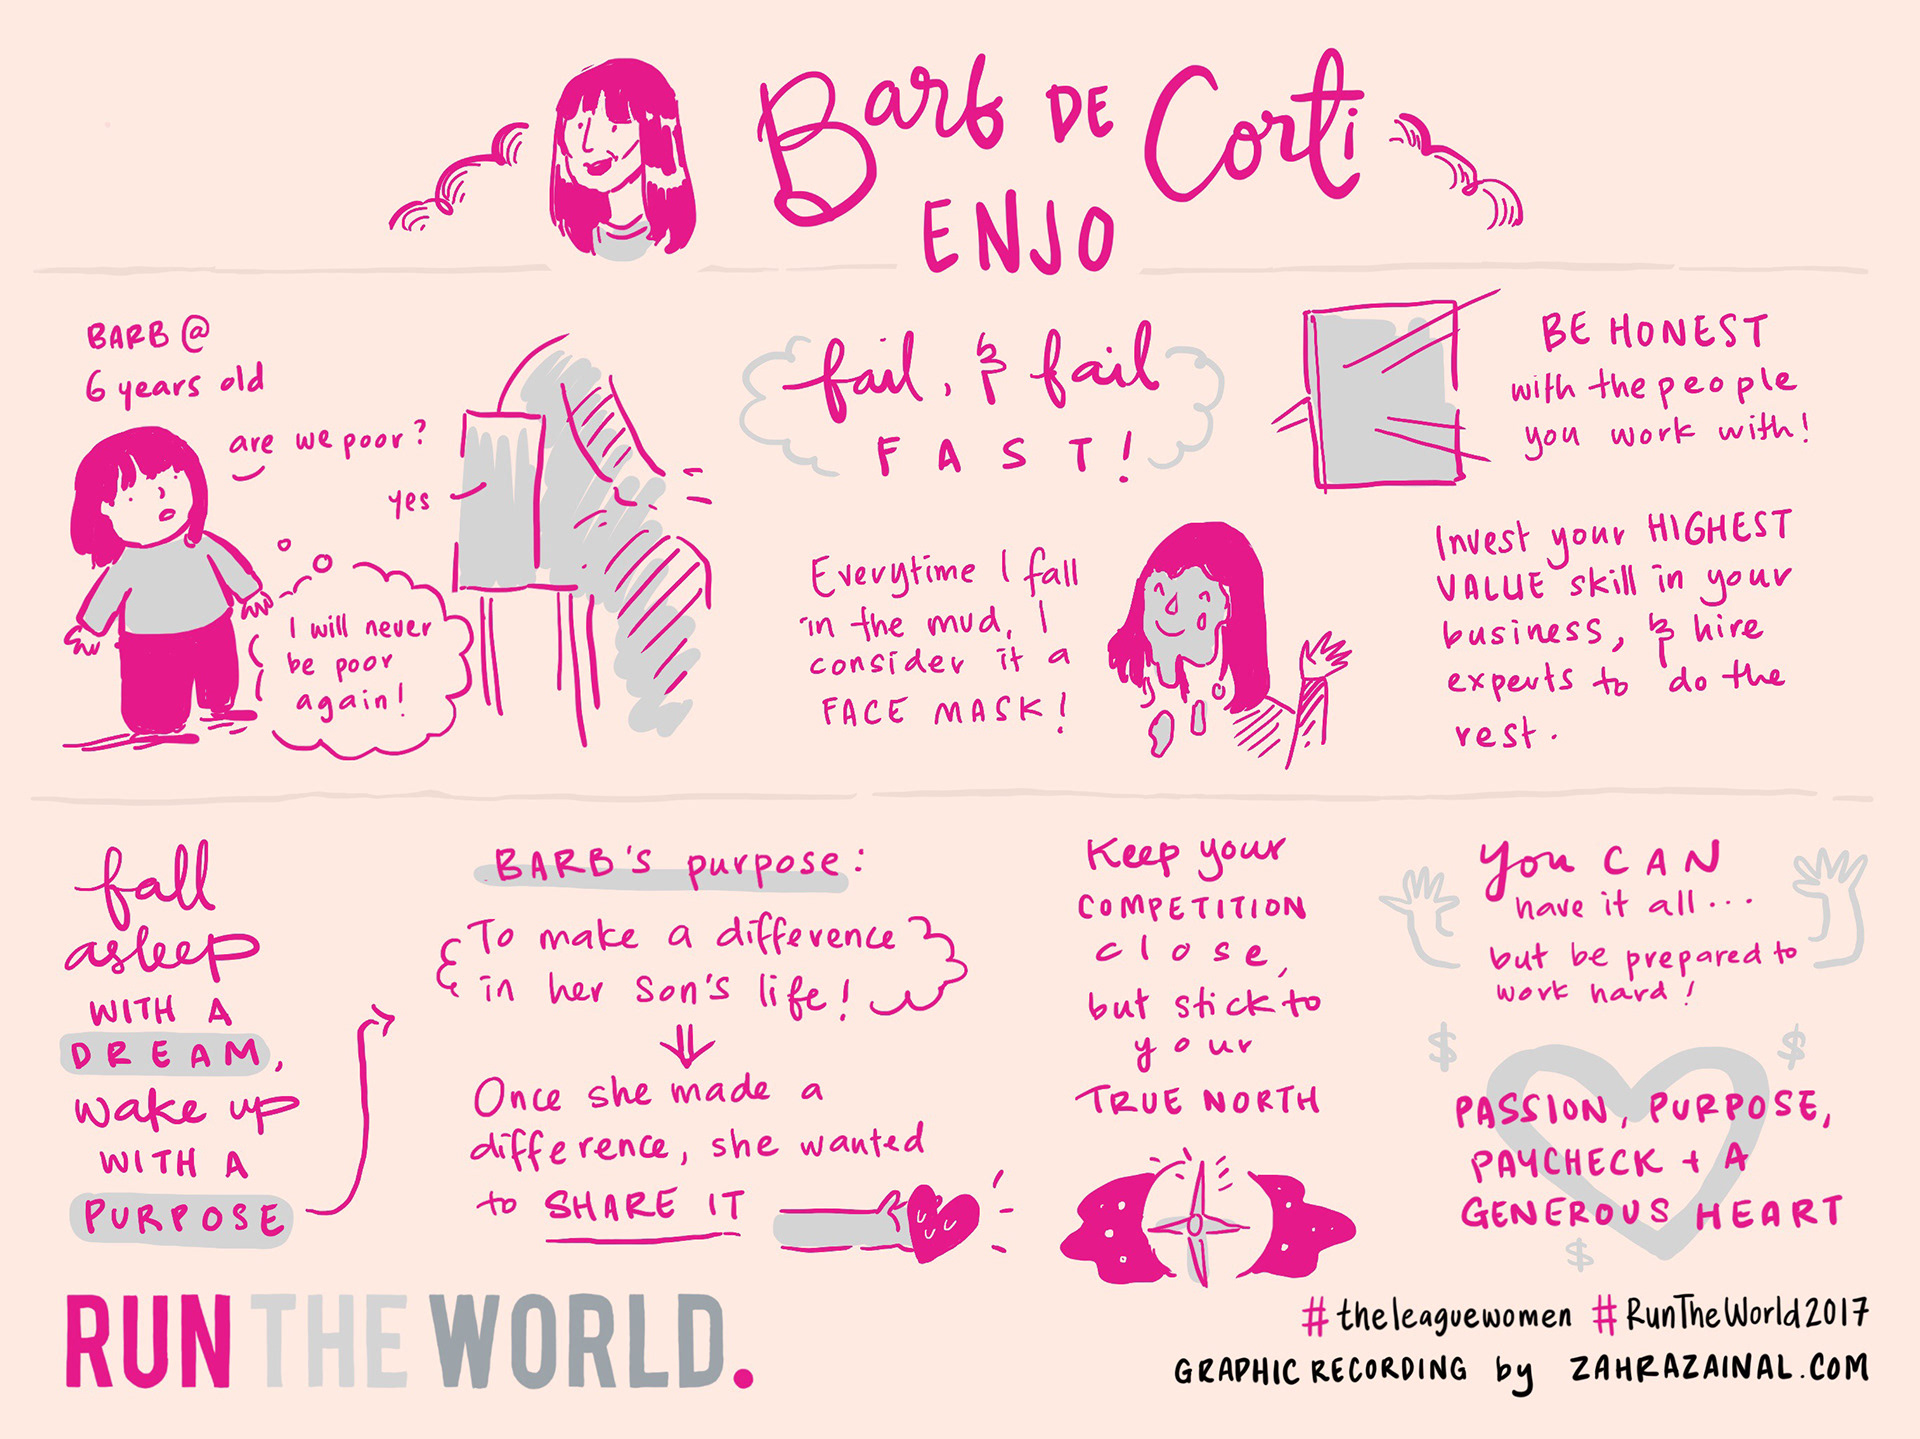 Barb DE Corti
ENJO
BARB @
6 years old
are we poor?
yes
I will never
be poor
again!
fail, & fail
FAST!
Everytime I fall
in the mud, I
consider it a
FACE MASK!
BE HONEST
with the people
you work with!
Invest your HIGHEST
VALUE skill in your
business, & hire
experts to do the
rest.
fall
asleep
WITH A
DREAM,
wake up
WITH A
PURPOSE
BARB'S purpose:
To make a difference
in her son's life!
Once she made a
difference, she wanted
to SHARE IT
Keep your
COMPETITION
close,
but stick to
your
TRUE NORTH
You CAN
have it all...
but be prepared to
work hard!
$ $
PASSION, PURPOSE,
PAYCHECK + A
GENEROUS HEART
$
RUN THE WORLD.
#theleaguewomen #RunTheWorld2017
GRAPHIC RECORDING by ZAHRAZAINAL.COM